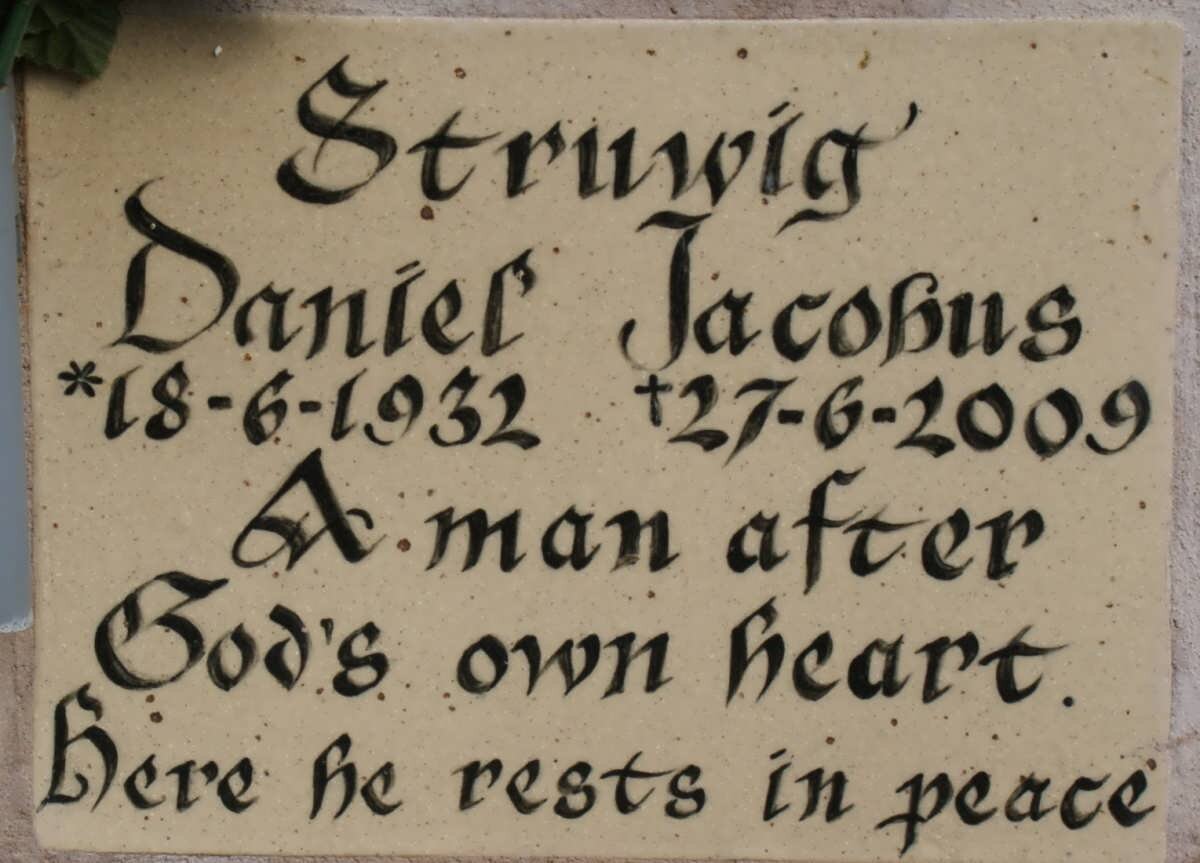 Struwig
Daniel Jacobus
*18-6-1932 †27-6-2009
A man after
God's own heart.
Here he rests in peace